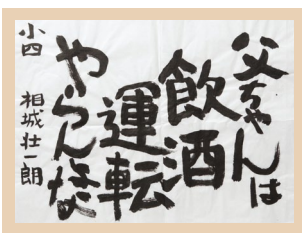 父ちゃんは
飲酒
運転
やらんよな
小四 相城壮一朗